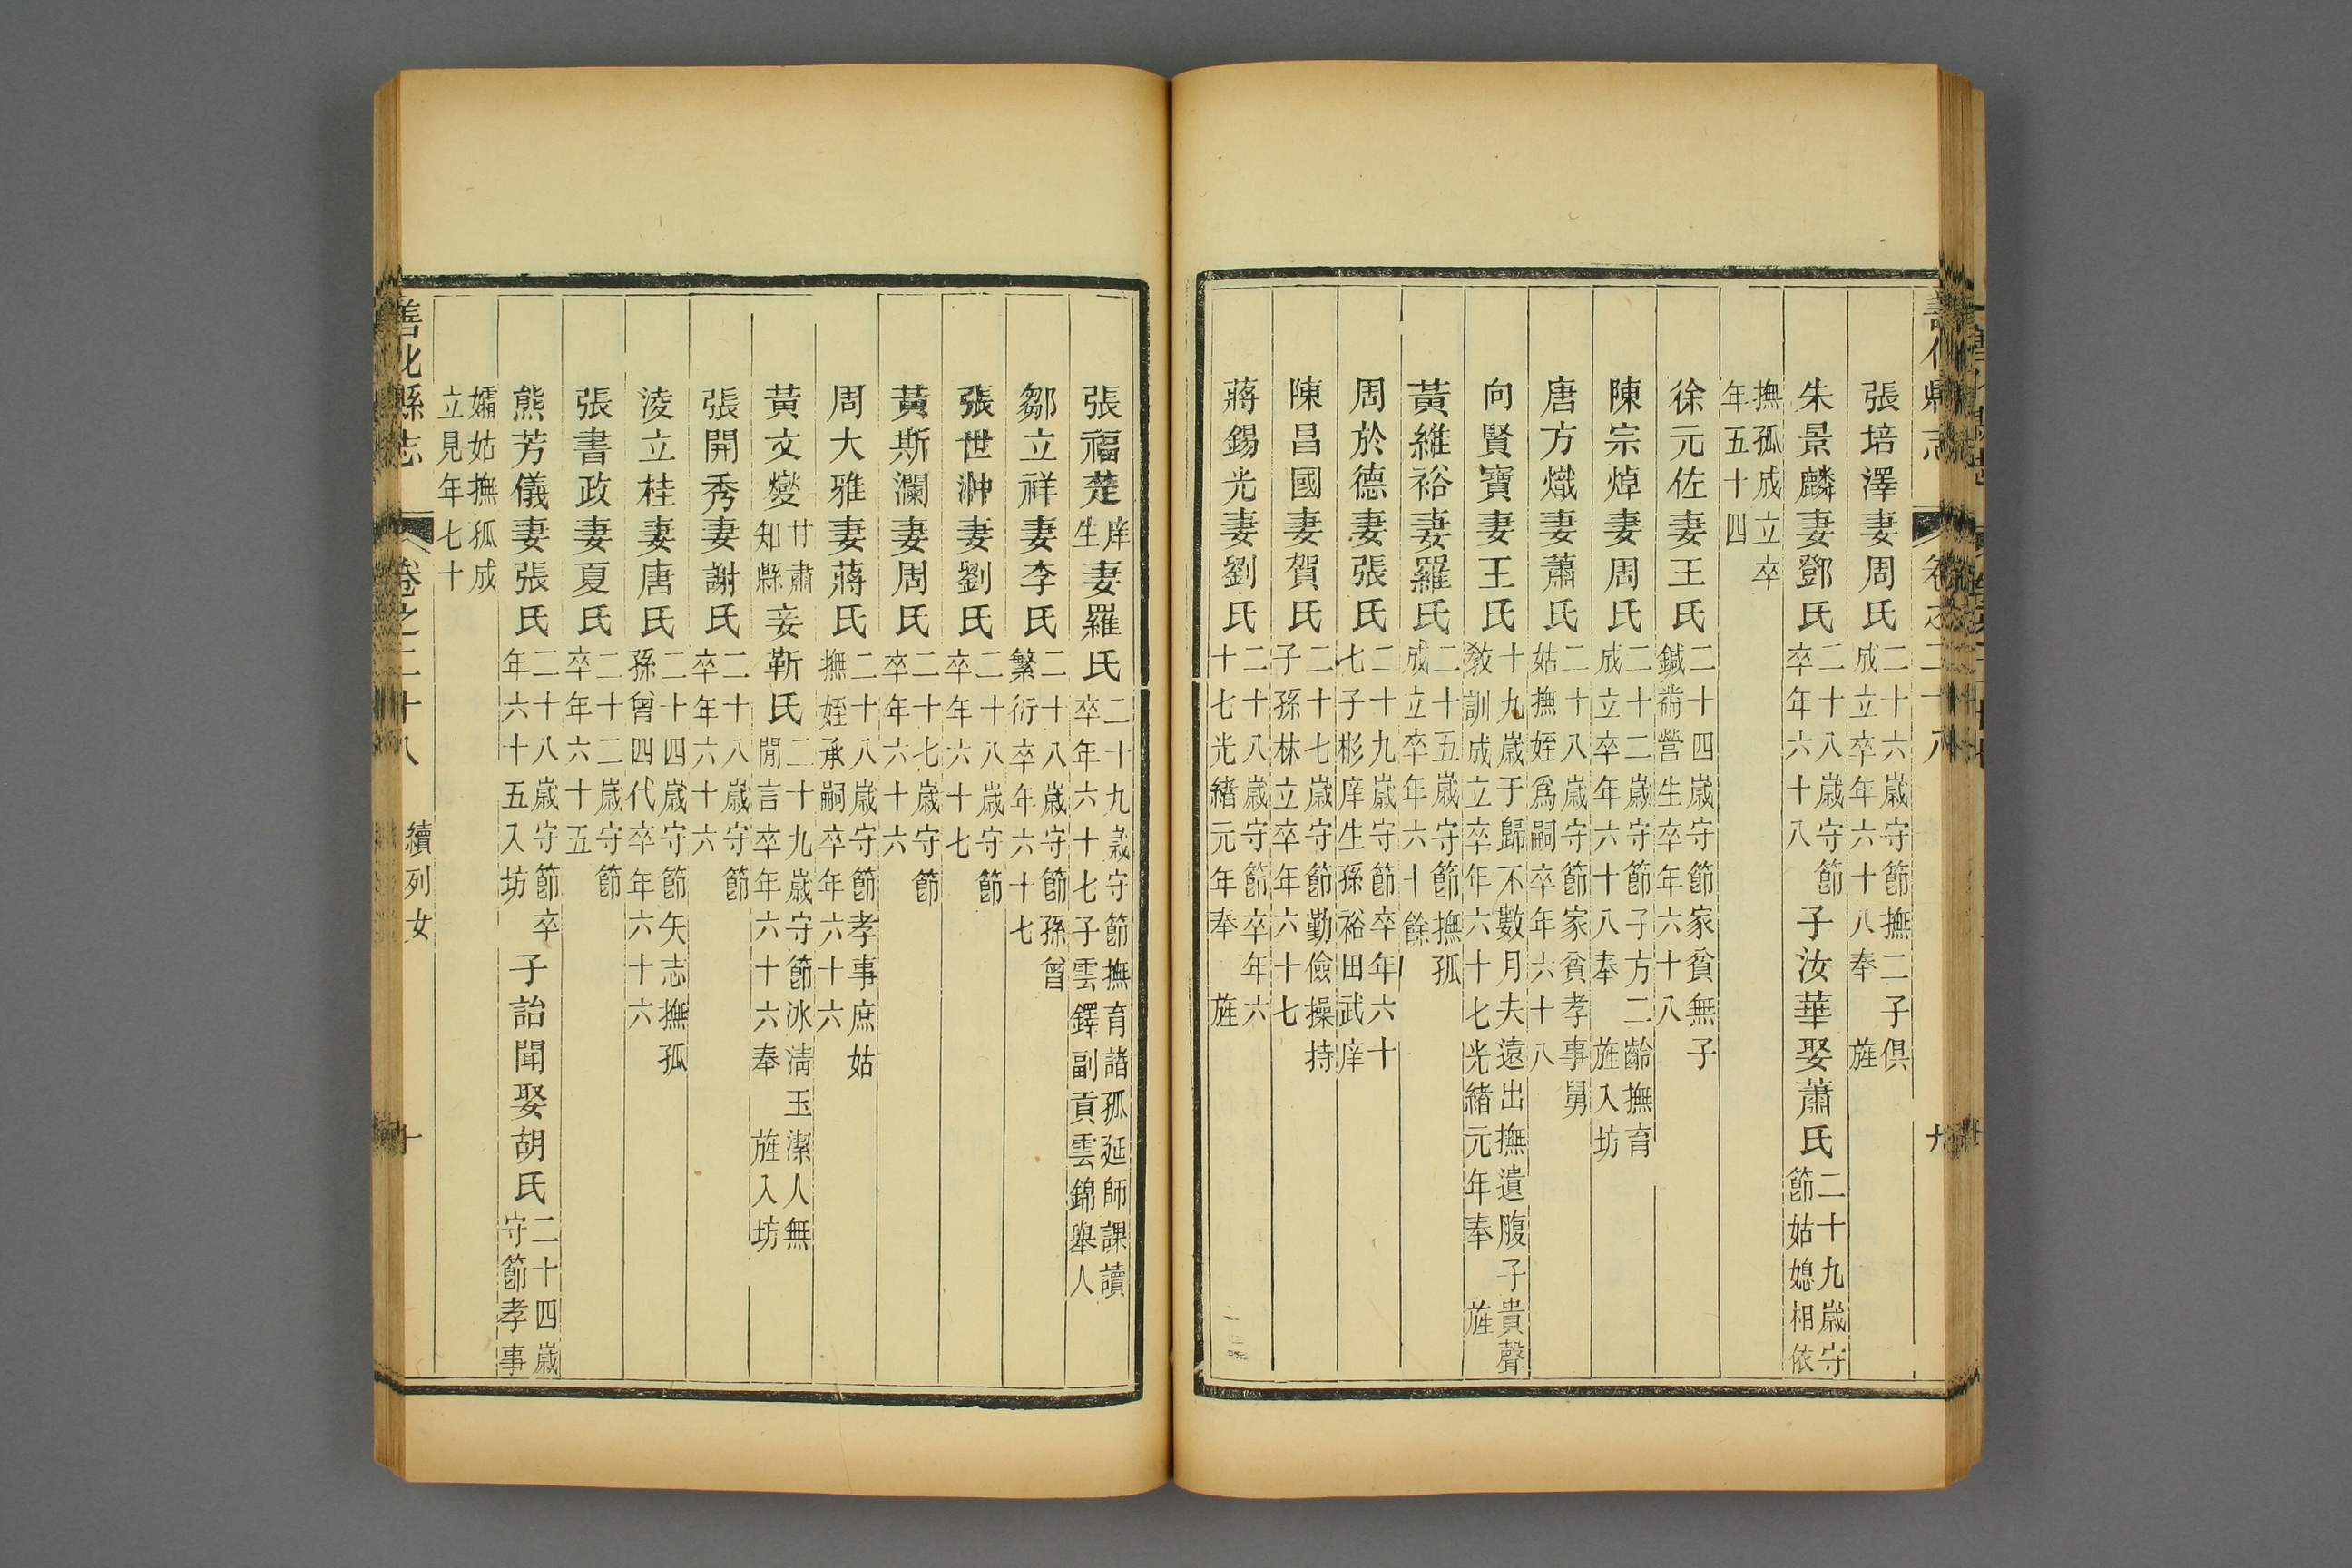 張培澤妻周氏二十六歲守節撫二子俱成立卒年六十八奉旌
朱景麟妻鄧氏二十八歲守節卒年六十八子汝華娶蕭氏二十九歲守節姑媳相依
撫孤成立卒年五十四
徐元佐妻王氏二十四歲守節家貧無子鍼黹營生卒年六十八
陳宗焯妻周氏二十二歲守節子方二齡撫育成立卒年六十八奉旌入坊
唐方熾妻蕭氏二十八歲守節家貧孝事舅姑撫姪爲嗣卒年六十八
向賢寶妻王氏十九歲于歸不數月夫遠出撫遺腹子貴聲敎訓成立卒年六十七光緒元年奉旌
黃維裕妻羅氏二十五歲守節撫孤成立卒年六十餘
周於德妻張氏二十九歲守節卒年六十七子彬庠生孫裕田武庠
陳昌國妻賀氏二十七歲守節勤儉操持子孫林立卒年六十七
蔣錫光妻劉氏二十八歲守節卒年六十七光緒元年奉旌
張福楚庠生妻羅氏二十九歲守節撫育諸孤延師課讀卒年六十七子雲鐸副貢雲錦舉人
鄒立祥妻李氏二十八歲守節孫曾繁衍卒年六十七
張世翀妻劉氏二十八歲守節卒年六十七
黃斯瀾妻周氏二十七歲守節卒年六十六
周大雅妻蔣氏二十八歲守節孝事庶姑撫姪承嗣卒年六十六
黃文燮甘肅知縣妾靳氏二十九歲守節冰淸玉潔人無閒言卒年六十六奉旌入坊
張開秀妻謝氏二十八歲守節卒年六十六
淩立桂妻唐氏二十四歲守節矢志撫孤孫曾四代卒年六十六
張書政妻夏氏二十二歲守節卒年六十五
熊芳儀妻張氏二十八歲守節卒年六十五入坊子詒聞娶胡氏二十四歲守節孝事
孀姑撫孤成立見年七十
善化縣志 卷之二十八 續列女 十